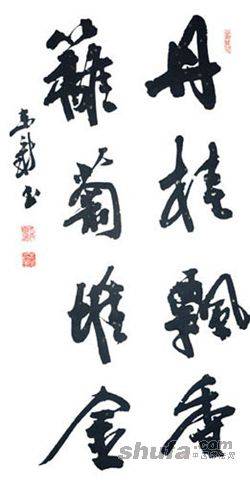 丹桂飄香
籬菊堆金
shufa.com